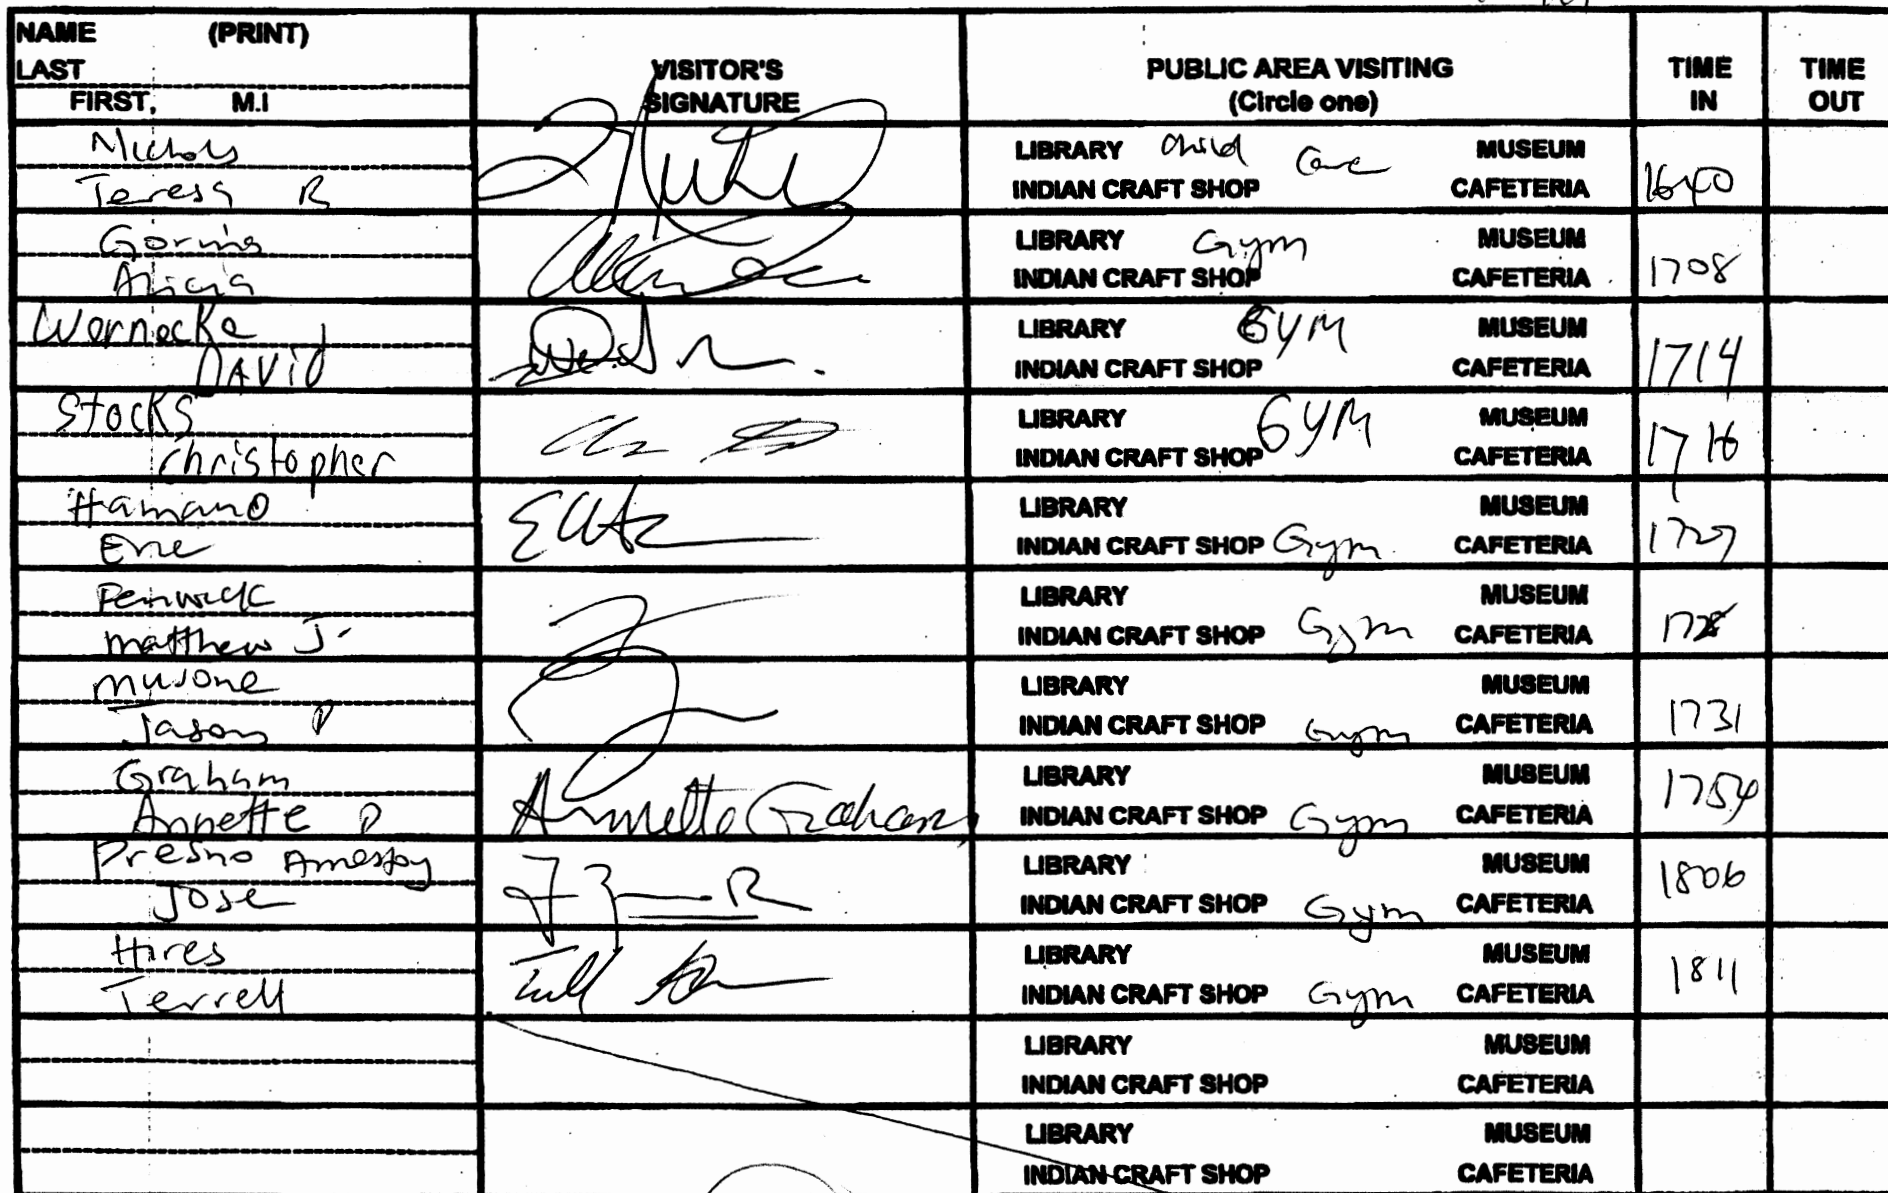 NAME (PRINT)
LAST
FIRST, M.I
VISITOR'S
SIGNATURE
PUBLIC AREA VISITING
(Circle one)
TIME
IN
TIME
OUT
Nichols
Teresa R
LIBRARY Child Care MUSEUM
INDIAN CRAFT SHOP CAFETERIA
1640
Alicia
LIBRARY Gym MUSEUM
INDIAN CRAFT SHOP CAFETERIA
1708
Wernecke
DAVID
LIBRARY GYM MUSEUM
INDIAN CRAFT SHOP CAFETERIA
1714
Stocks
Christopher
LIBRARY GYM MUSEUM
INDIAN CRAFT SHOP CAFETERIA
1716
Hamano
Eric
LIBRARY MUSEUM
INDIAN CRAFT SHOP Gym CAFETERIA
1727
Penwick
Matthew J.
LIBRARY MUSEUM
INDIAN CRAFT SHOP Gym CAFETERIA
1728
Musone
Jason P
LIBRARY MUSEUM
INDIAN CRAFT SHOP Gym CAFETERIA
1731
Graham
Annette D
Annette Graham
LIBRARY MUSEUM
INDIAN CRAFT SHOP Gym CAFETERIA
1754
Presno Amestoy
Jose
LIBRARY MUSEUM
INDIAN CRAFT SHOP Gym CAFETERIA
1806
Hires
Terrell
LIBRARY MUSEUM
INDIAN CRAFT SHOP Gym CAFETERIA
1811
LIBRARY MUSEUM
INDIAN CRAFT SHOP CAFETERIA
LIBRARY MUSEUM
INDIAN CRAFT SHOP CAFETERIA